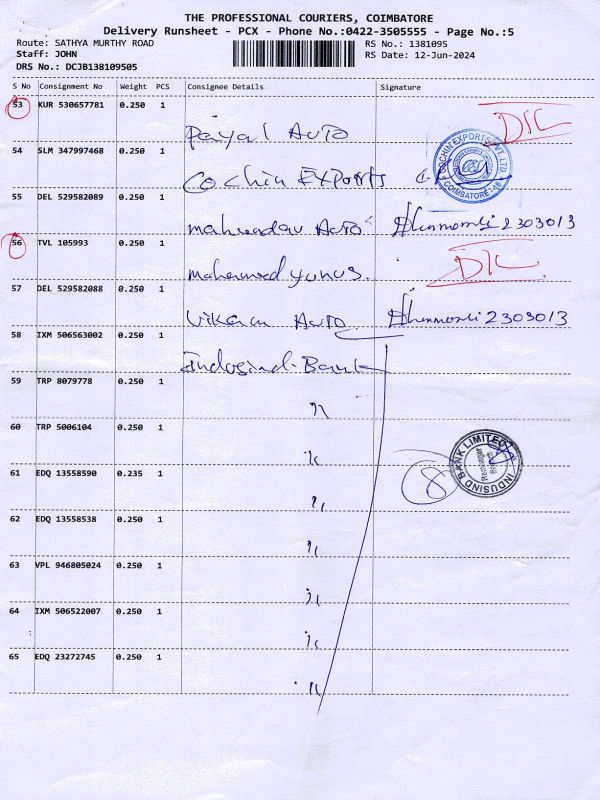 THE PROFESSIONAL COURIERS, COIMBATORE
Delivery Runsheet - PCX - Phone No.:0422-3505555 - Page No.:5
Route: SATHYA MURTHY ROAD RS No.: 1381095
Staff: JOHN RS Date: 12-Jun-2024
DRS No.: DCJB138109505
S No Consignment No Weight PCS Consignee Details Signature
53 KUR 530657781 0.250 1
Payal Auto DIL
54 SLM 347997468 0.250 1
Cochin Exports COCHIN EXPORTS PVT LTD. COIMBATORE-18
55 DEL 529582089 0.250 1
mahaadav Auto 2303013
56 TVL 105993 0.250 1
mohammed yunus. DIL
57 DEL 529582088 0.250 1
Vikram Auto 2303013
58 IXM 506563002 0.250 1
Indusind. Bank
59 TRP 8079778 0.250 1
"
60 TRP 5006104 0.250 1
" 8 INDUSIND BANK LIMITED
61 EDQ 13558590 0.235 1
"
62 EDQ 13558538 0.250 1
"
63 VPL 946805024 0.250 1
"
64 IXM 506522007 0.250 1
"
65 EDQ 23272745 0.250 1
"